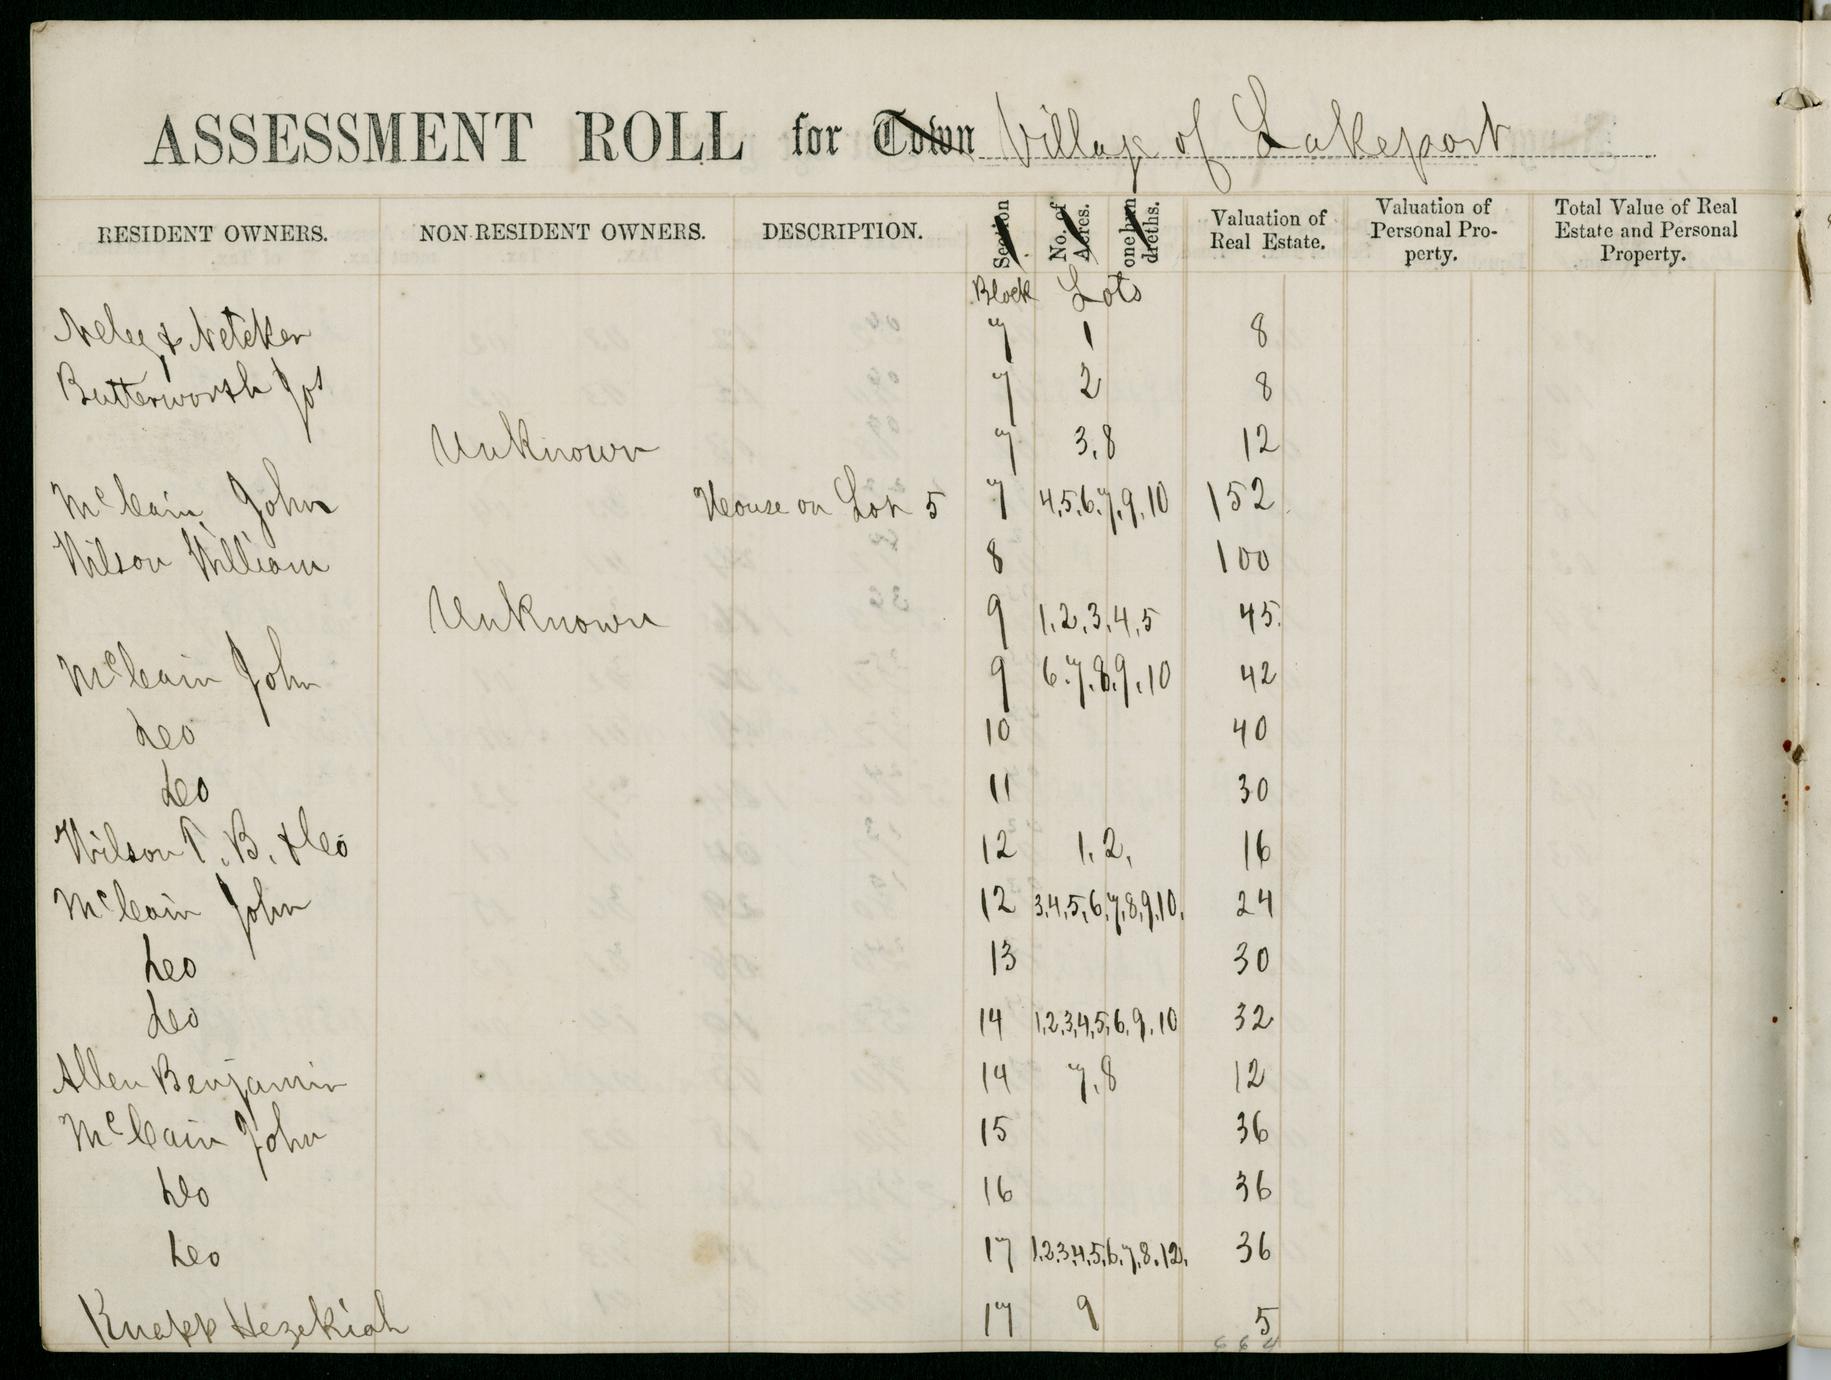 ASSESSMENT ROLL for Town Village of Lakeport
RESIDENT OWNERS. NON-RESIDENT OWNERS. DESCRIPTION. Section No. of Acres. one hundredths. Valuation of Real Estate. Valuation of Personal Property. Total Value of Real Estate and Personal Property.
Block Lots
& Netcker 7 1 8
Butterworth Jos 7 2 8
Unknown 7 3,8 12
McCain, John House on Lot 5 7 4,5,6,7,9,10 152
Wilson William 8 100
Unknown 9 1,2,3,4,5 45
McCain John 9 6,7,8,9,10 42
Do 10 40
Do 11 30
Wilson T. B. & Co 12 1,2, 16
McCain John 12 3,4,5,6,7,8,9,10, 24
Do 13 30
Do 14 1,2,3,4,5,6,9,10 32
Allen Benjamin 14 7,8 12
McCain John 15 36
Do 16 36
Do 17 1,2,3,4,5,6,7,8,12, 36
Knapp Hezekiah 17 9 5
664